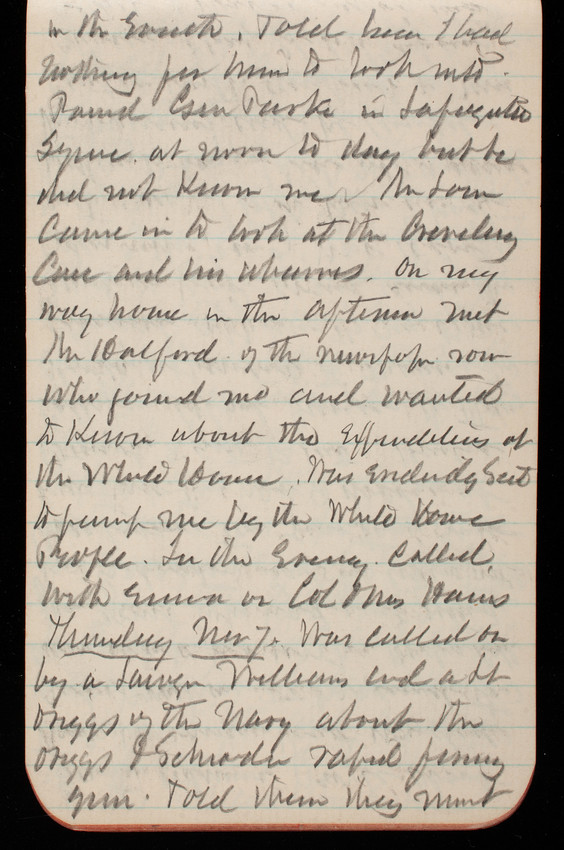 in the South. Told him I had
nothing for him to look into.
Found Gen Parke in Lafayette
Square at noon to day but he
did not know me. Mr
came in to look at the
Case and his . On my
way home in the afternoon met
Mr Halford of the newspaper row
who joined me and wanted
to know about the Expenditures at
the White House. Was evidently sent
to pump me by the White House
People. In the Evening called
with Emma on Col & Mrs Hains
Thursday Nov 7. Was called on
by a Lawyer Williams and a Lt
Driggs of the Navy about the
Driggs & Schroder rapid firing
gun. Told them they must